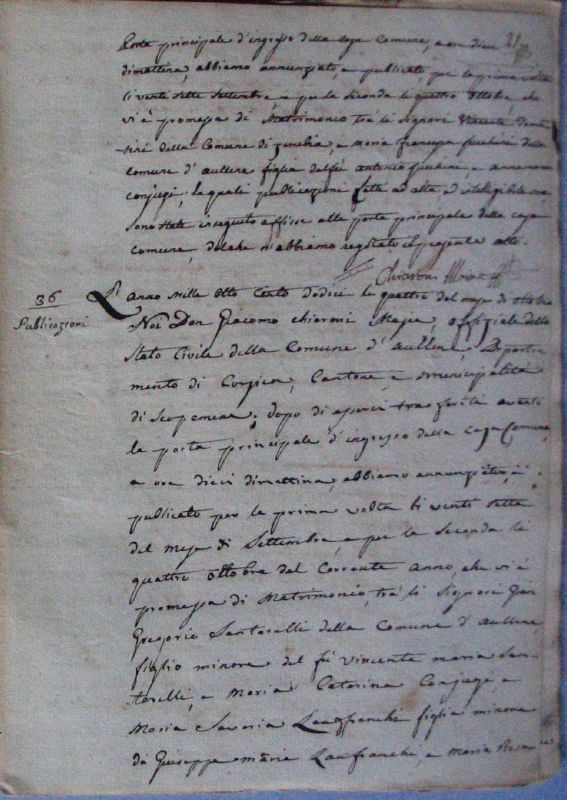 Porta principale d'ingresso della casa Comune, a ore dieci
dimattina, abbiamo annunziato, e publicato per la prima volta
li venti sette Settembre, e per la seconda li quattro ottobre, che
vi è promessa di Matrimonio tra li Signori
della Comune di e Maria francesca della
comune d'aullene figlia del fù antonio e
conjugi; le quali publicazioni fatte ad alta, ed intelligibile voce
sono state inseguito affisse alla porta principale della casa
comune, del che n'abbiamo registato il presente atto.
Chiaroni Maire
36
Publicazioni
L'anno mille otto cento dodici li quattro del mese di ottobre
Noi Don Giacomo Chiaroni Maire, offiziale dello
stato Civile della Comune d'aullene, Diparti
mento di Corsica, Cantone, e municipalità
di Scopamene; dopo di esserci trasferiti avanti
la porta principale d'ingresso della casa Comune,
a ora dieci dimattina, abbiamo annunziato, e
publicato per la prima volta li venti sette
del mese di Settembre, e per la seconda li
quattro ottobre del Corrente anno, che vi è
promessa di Matrimonio, tra li Signori Gio:
Gregorio Santarelli della Comune d'aullene,
figlio minore del fù Vincente maria San-
tarelli, e Maria Catarina Conjugi, e
Maria Saveria Lanfranchi figlia minora
di Giuseppe maria Lanfranchi, e Maria Rosa